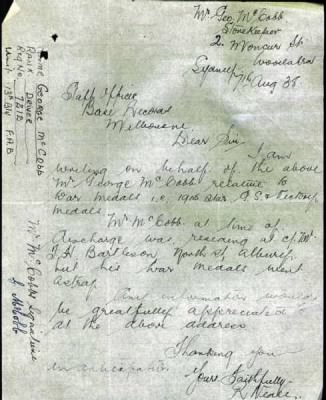 Mr. Geo. McCobb
Storekeeper
2. Moncur St.
Woollahra
Sydney 7th Aug 38
Staff Officer
Base Records
Melbourne
Dear Sir.
I am
writing on behalf of the above
Mr George McCobb relative to
War medals i.e. 1914 Star G.S & Victory
medals
Mr. McCobb at time of
discharge was residing at c/. Mr.
J. H. Bartleson, North St Albury,
but his war medals went
astray.
Any information would
be greatfully appreciated
at the above address
Thanking you
in anticipation
Yours Faithfully
K Neale.
Name George McCobb
Rank Driver
Reg No. 7218
Unit 13th Bty F.A.B
Mr McCobbs Signature
G McCobb